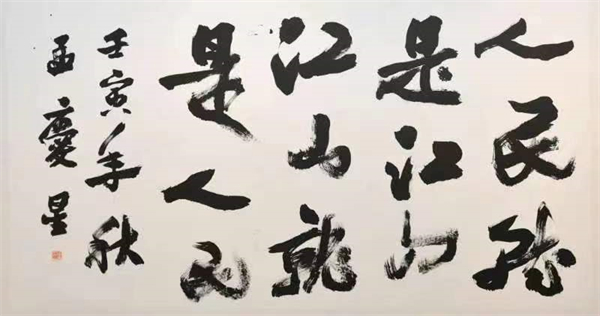 人民就
是江山
江山就
是人民
壬寅年秋
孟慶星